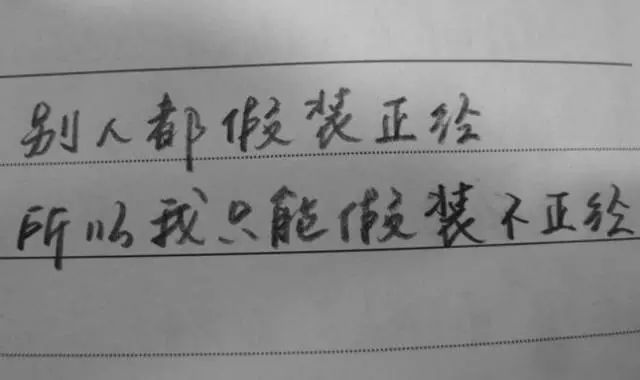 别人都假装正经
所以我只能假装不正经